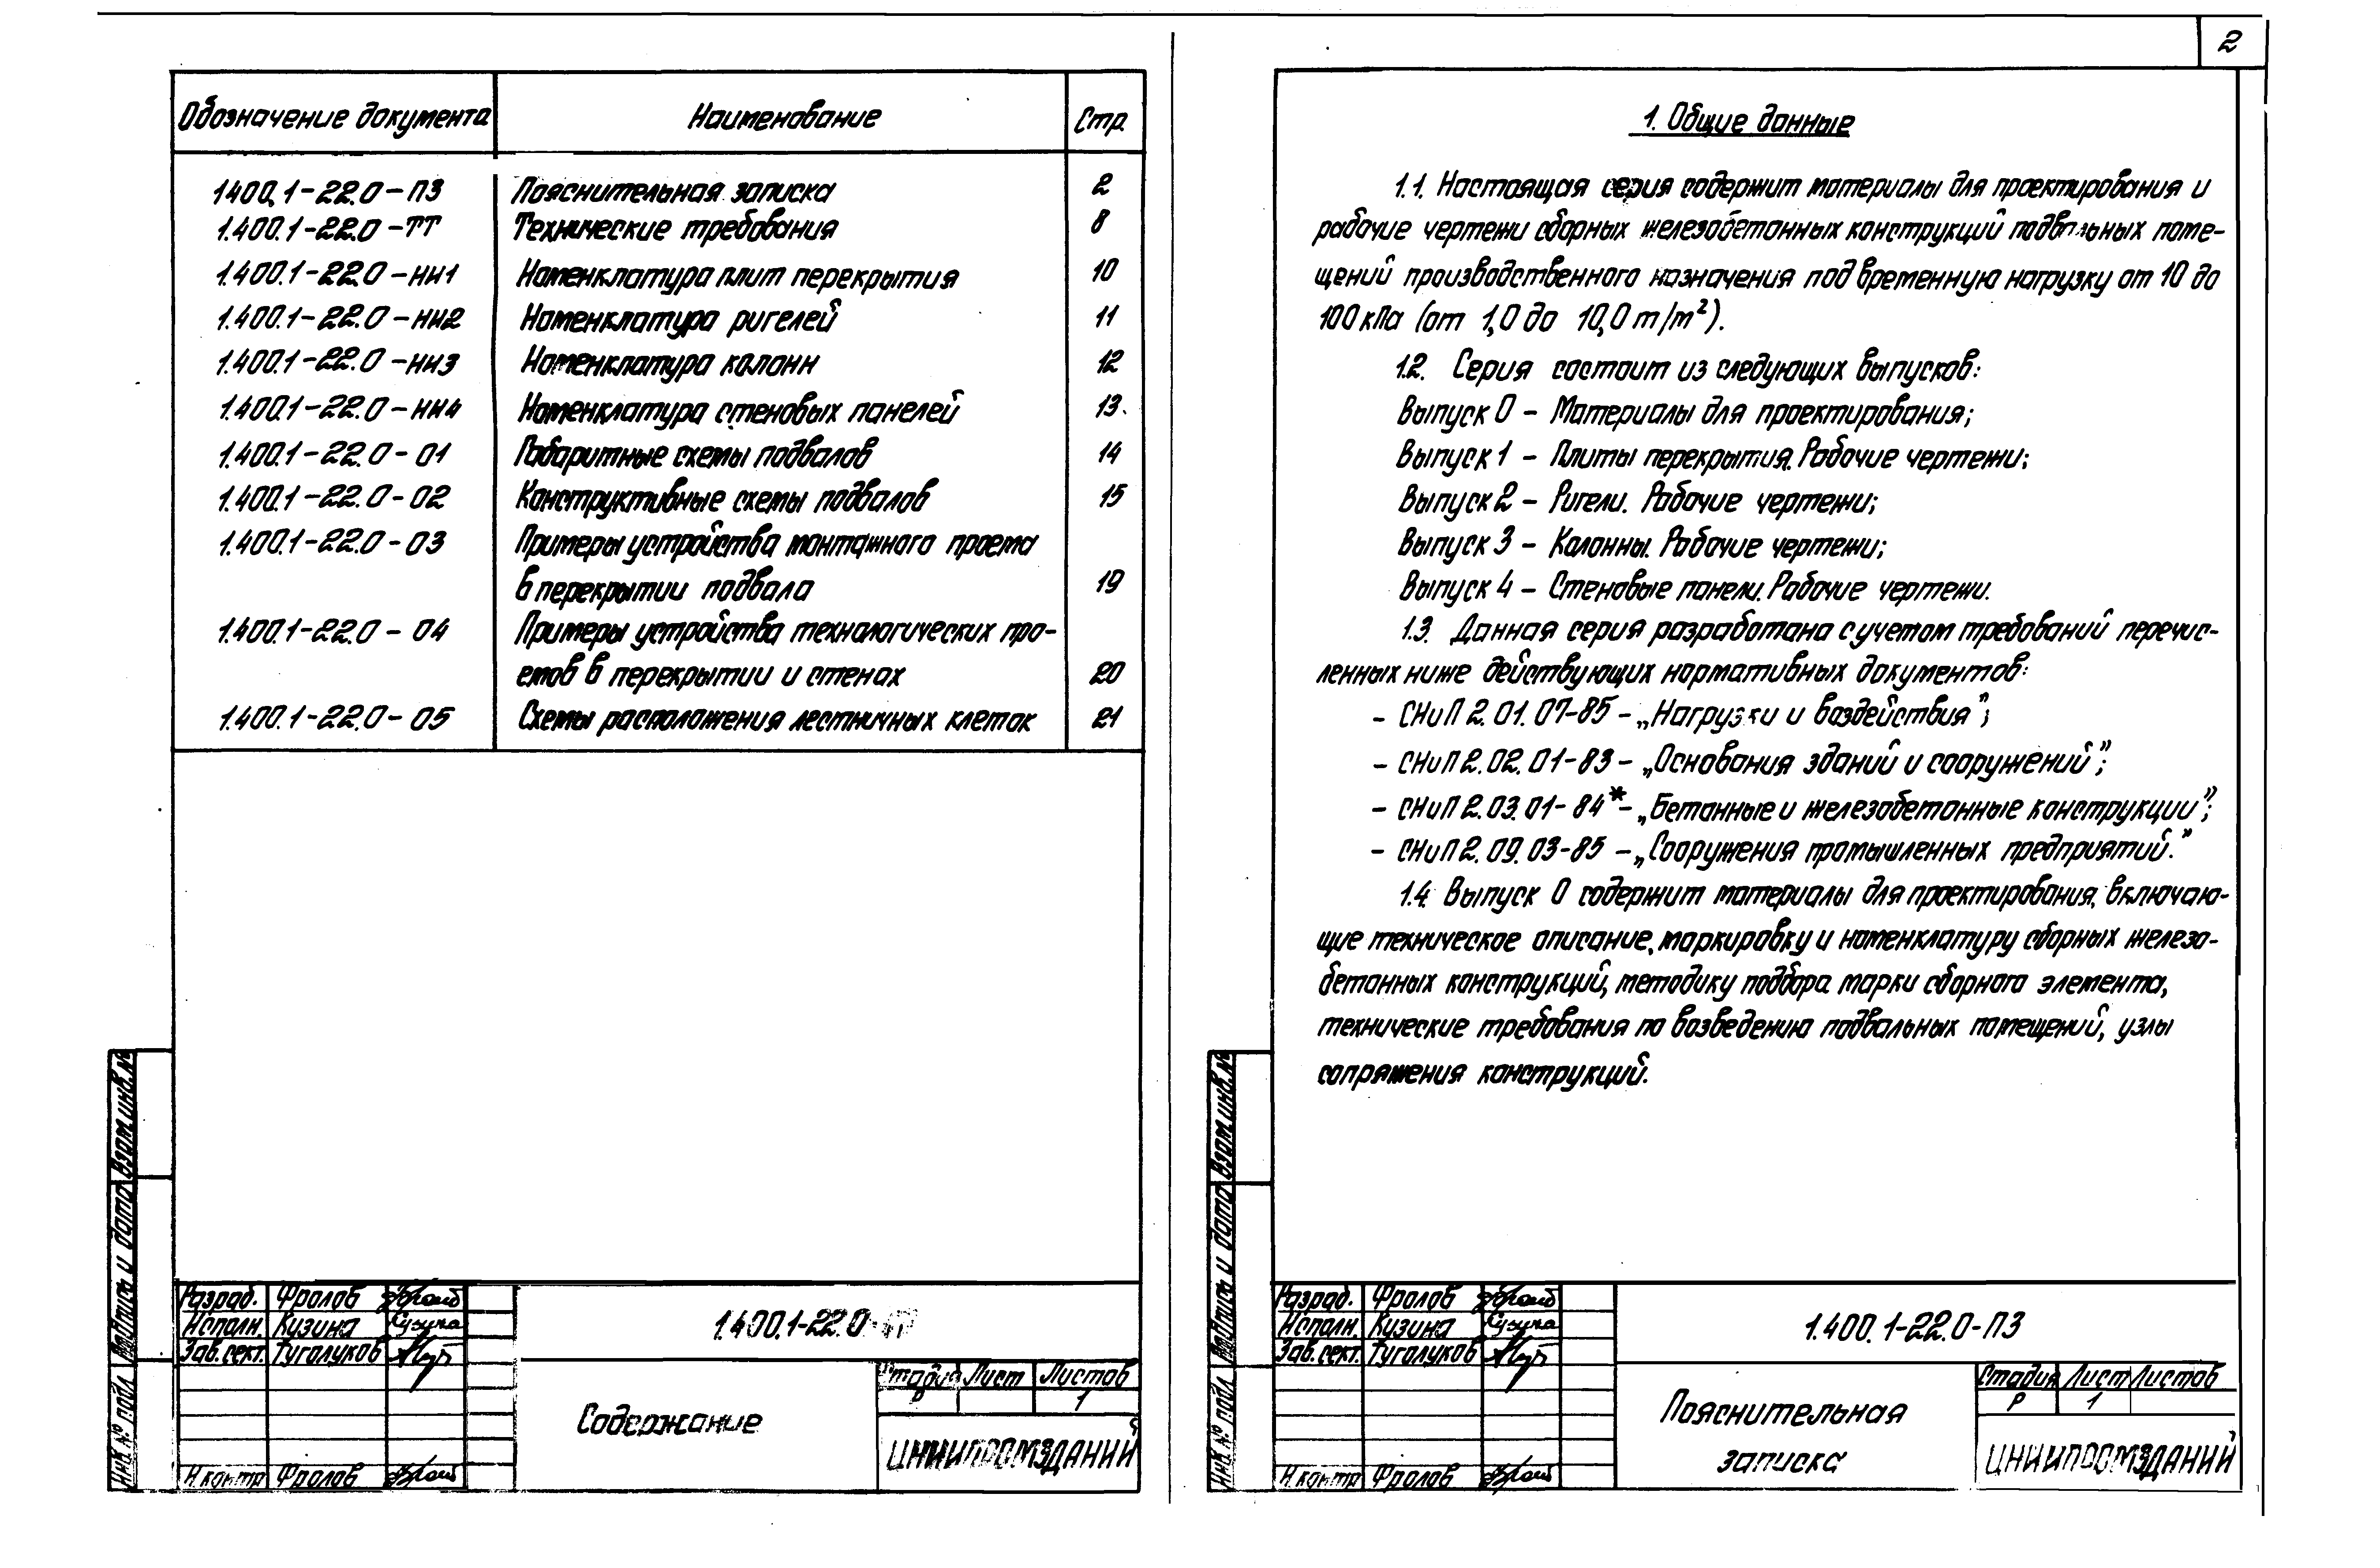 2
Обозначение документа Наименование Стр.
1.400.1-22.0-ПЗ Пояснительная записка 2
1.400.1-22.0-ТТ Технические требования 8
1.400.1-22.0-НИ1 Номенклатура плит перекрытия 10
1.400.1-22.0-НИ2 Номенклатура ригелей 11
1.400.1-22.0-НИ3 Номенклатура колонн 12
1.400.1-22.0-НИ4 Номенклатура стеновых панелей 13
1.400.1-22.0-01 Габаритные схемы подвалов 14
1.400.1-22.0-02 Конструктивные схемы подвалов 15
1.400.1-22.0-03 Примеры устройства монтажного проема
в перекрытии подвала 19
1.400.1-22.0-04 Примеры устройства технологических про-
емов в перекрытии и стенах 20
1.400.1-22.0-05 Схемы расположения лестничных клеток 21
Взам.инв.№
Подпись и дата
Инв № подл
Разраб. Фролов
Исполн. Кузина
Зав.сект. Туголуков
Н.контр Фролов
1.400.1-22.0
Содержание
Стадия Лист Листов
Р 1
ЦНИИПРОМЗДАНИЙ
1. Общие данные
1.1. Настоящая серия содержит материалы для проектирования и
рабочие чертежи сборных железобетонных конструкций подвальных поме-
щений производственного назначения под временную нагрузку от 10 до
100 кПа (от 1,0 до 10,0 т/м²).
1.2. Серия состоит из следующих выпусков:
Выпуск 0 - Материалы для проектирования;
Выпуск 1 - Плиты перекрытия. Рабочие чертежи;
Выпуск 2 - Ригели. Рабочие чертежи;
Выпуск 3 - Колонны. Рабочие чертежи;
Выпуск 4 - Стеновые панели. Рабочие чертежи.
1.3. Данная серия разработана с учетом требований перечис-
ленных ниже действующих нормативных документов:
- СНиП 2.01.07-85 - „Нагрузки и воздействия";
- СНиП 2.02.01-83 - „Основания зданий и сооружений";
- СНиП 2.03.01-84* - „Бетонные и железобетонные конструкции";
- СНиП 2.09.03-85 - „Сооружения промышленных предприятий."
1.4. Выпуск 0 содержит материалы для проектирования, включаю-
щие техническое описание, маркировку и номенклатуру сборных железо-
бетонных конструкций, методику подбора марки сборного элемента,
технические требования по возведению подвальных помещений, узлы
сопряжения конструкций.
Взам.инв.№
Подпись и дата
Инв № подл
Разраб. Фролов
Исполн. Кузина
Зав.сект. Туголуков
Н.контр Фролов
1.400.1-22.0-ПЗ
Пояснительная
записка
Стадия Лист Листов
Р 1
ЦНИИПРОМЗДАНИЙ